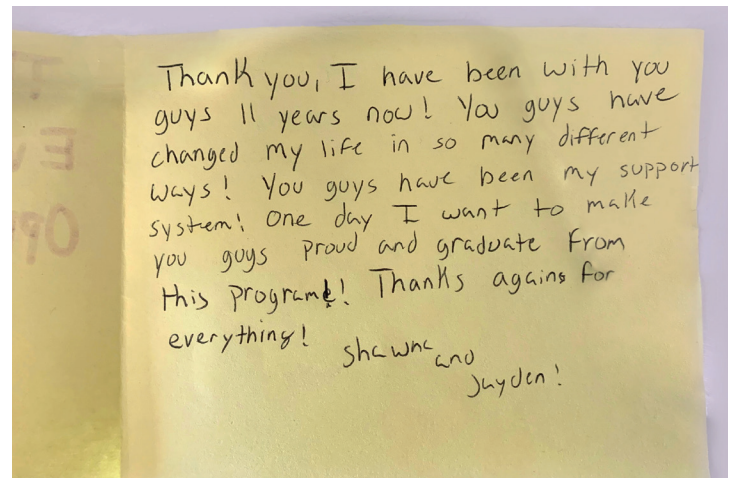 Thank you, I have been with you
guys 11 years now! You guys have
changed my life in so many different
ways! You guys have been my support
system! One day I want to make
you guys proud and graduate from
this program! Thanks agains for
everything!
Shawna and
Jayden!